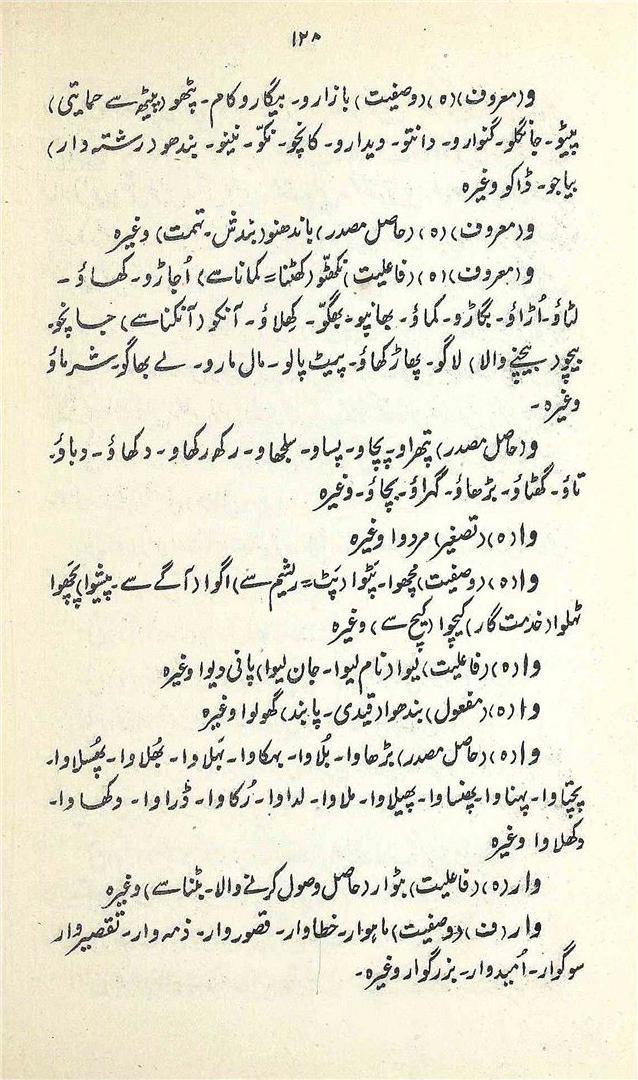 ۱۲۸
و (معروف) (ہ) (وصفیت) بازارو۔ بیگارو کام۔ پٹھو (پیٹھ سے حمایتی)
پیٹو۔ جانگلو۔ گنوارو۔ دانتو۔ ویدارو۔ کانچو۔ نکّو۔ نینو۔ بندھو (رشتہ دار)
بیاجو۔ ڈاکو وغیرہ
و (معروف) (ہ) (حاصل مصدر) باندھنو (بندش۔ تہمت) وغیرہ
و (معروف) (ہ) (فاعلیت) نکھٹو (کھٹنا = کمانا سے) اُجاڑو۔ کھاؤ۔
لٹاؤ۔ اُڑاؤ۔ بگاڑو۔ کماؤ۔ بھانپو۔ بھگّو۔ کھِلاؤ۔ آنکو (آنکنا سے) جانچو۔
بیچو (بیچنے والا) لاگو۔ پھاڑ کھاؤ۔ پیٹ پالو۔ مال مارو۔ لے بھاگو۔ شرماؤ
وغیرہ۔
و (حاصل مصدر) پتھراو۔ پچاو۔ پساو۔ سلجھاو۔ رکھ رکھاو۔ دکھاؤ۔ دباؤ۔
تاؤ۔ گھٹاؤ۔ بڑھاؤ۔ گہراؤ۔ بچاؤ۔ وغیرہ
وا (ہ) (تصغیر) مردوا وغیرہ
وا (ہ) (وصفیت) مچھوا۔ پَٹوا (پَٹ = ریشم سے) اگوا (آگے سے۔ پیشوا) پچھوا
ٹہلوا (خدمت گار) کیچوا (کیچ سے) وغیرہ
وا (ہ) (فاعلیت) لیوا (نام لیوا۔ جان لیوا) پانی دیوا وغیرہ
وا (ہ) (مفعول) بندھوا (قیدی۔ پابند) گھولوا وغیرہ
وا (ہ) (حاصل مصدر) بڑھاوا۔ بُلاوا۔ بہکاوا۔ بَہلاوا۔ بھُلاوا۔ پھُسلاوا۔
پچتاوا۔ پہناوا۔ پھنساوا۔ پھیلاوا۔ ملاوا۔ لداوا۔ رُکاوا۔ ڈراوا۔ دکھاوا۔
دکھلاوا وغیرہ
وار (ہ) (فاعلیت) بٹوار (حاصل وصول کرنے والا۔ بٹنا سے) وغیرہ
وار (ف) (وصفیت) ماہوار۔ خطاوار۔ قصوروار۔ ذمہ وار۔ تقصیروار
سوگوار۔ اُمیدوار۔ بزرگوار وغیرہ۔